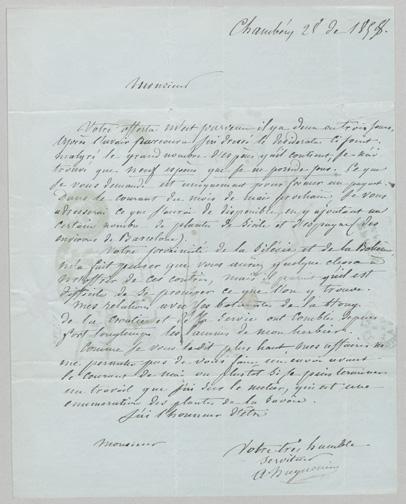 Chambéry 28 de 1858.
Monsieur
Votre offerta m'est parvenu il y a deux ou trois jours,
Après l'avoir parcouru j'ai dressé le desiderata ci joint.
malgré le grand nombre d'espèces qu'il contient, je n'ai
trouvé que neuf espèces que je ne possède pas. Ce que
je vous demande est uniquement pour former un paquet.
Dans le courant du mois de mai prochain, je vous
adresserai ce que j'aurai de disponible, en y ajoutant un
certain nombre de plantes de Sicile et d'espagne (des
environs de Barcelone).
Votre proximité de la Silésie et de la
m'a fait penser que vous auriez quelque chose à
m'offrir de ces contrées, mais qu'il est
difficile de se procurer ce que l'on y trouve.
Mes relations avec les botanistes de la Hong.
de la Croatie et de la Servie ont comblé depuis
fort longtemps les lacunes de mon herbier.
Comme je vous l'ai dit plus haut, mes affaires ne
me permettent pas de vous faire un envoi avant
le courant de mai ou plustot si je puis terminer
un travail que j'ai sur le métier, qui est une
énumération des plantes de la Savoie.
J'ai l'honneur d'etre
Monsieur
Votre très humble
serviteur
A. Huguenin